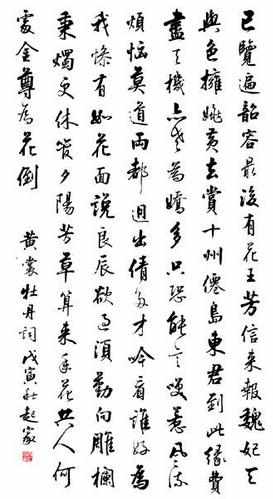 已覽遍韶容最後有花王芳信來報魏妃天
與色擁姚黃去賞十州僊島東君到此緣費
盡天機亦老為嬌多只恐能言笑惹風流
煩惱莫道兩都迥出倩多才吟看誰好為
我慘有如花面說良辰欲過須勤向雕欄
秉燭更休管夕陽芳草算來年花共人何
處金尊為花倒
黃裳牡丹詞戊寅秋起家